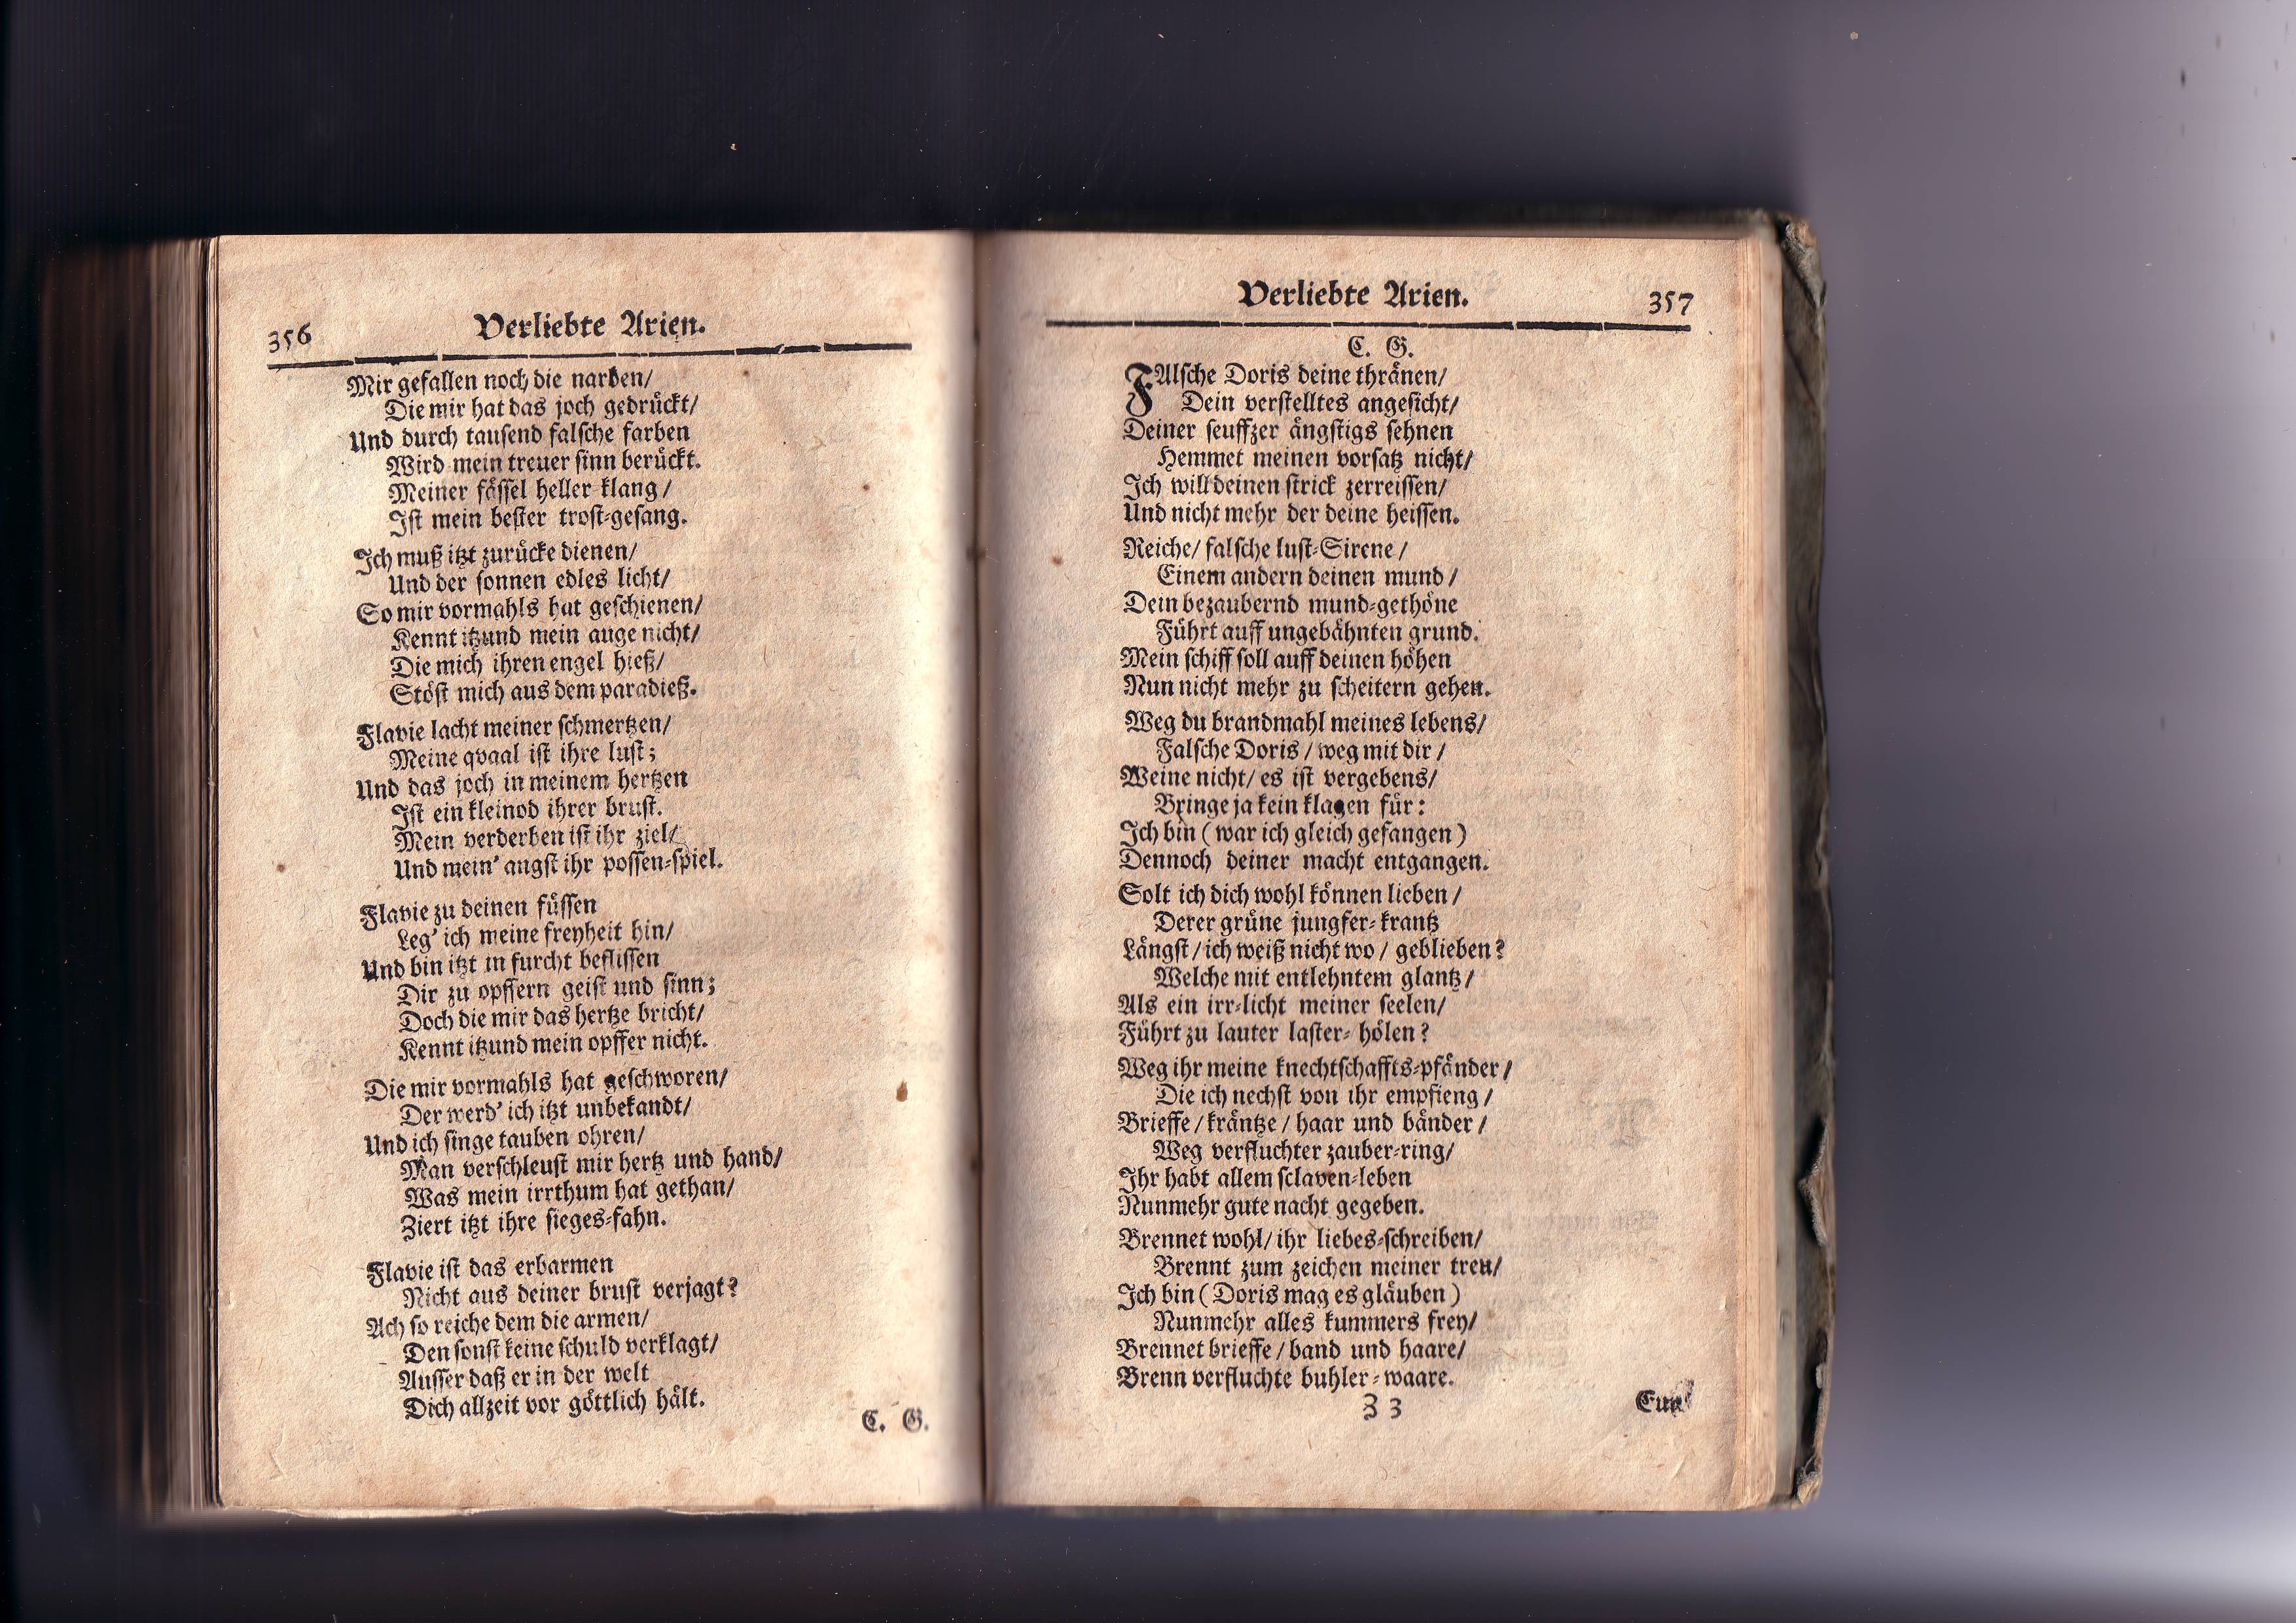 356
Verliebte Arien.
Mir gefallen noch die narben/
Die mir hat das joch gedrückt/
Und durch tausend falsche farben
Wird mein treuer sinn berückt.
Meiner fässel heller klang/
Ist mein bester trost-gesang.
Ich muß itzt zurücke dienen/
Und der sonnen edles licht/
So mir vormahls hat geschienen/
Kennt itzund mein auge nicht/
Die mich ihren engel hieß/
Stöst mich aus dem paradieß.
Flavie lacht meiner schmertzen/
Meine qvaal ist ihre lust;
Und das joch in meinem hertzen
Ist ein kleinod ihrer brust.
Mein verderben ist ihr ziel/
Und mein' angst ihr possen-spiel.
Flavie zu deinen füssen
Leg' ich meine freyheit hin/
Und bin itzt in furcht beflissen
Dir zu opffern geist und sinn;
Doch die mir das hertze bricht/
Kennt itzund mein opffer nicht.
Die mir vormahls hat geschworen/
Der werd' ich itzt unbekandt/
Und ich singe tauben ohren/
Man verschleust mir hertz und hand/
Was mein irrthum hat gethan/
Ziert itzt ihre sieges-fahn.
Flavie ist das erbarmen
Nicht aus deiner brust verjagt?
Ach so reiche dem die armen/
Den sonst keine schuld verklagt/
Ausser daß er in der welt
Dich allzeit vor göttlich hält.
C. G.
Verliebte Arien.
357
C. G.
FAlsche Doris deine thränen/
Dein verstelltes angesicht/
Deiner seuffzer ängstigs sehnen
Hemmet meinen vorsatz nicht/
Ich will deinen strick zerreissen/
Und nicht mehr der deine heissen.
Reiche/ falsche lust-Sirene/
Einem andern deinen mund/
Dein bezaubernd mund-gethöne
Führt auff ungebähnten grund.
Mein schiff soll auff deinen höhen
Nun nicht mehr zu scheitern gehen.
Weg du brandmahl meines lebens/
Falsche Doris/ weg mit dir/
Weine nicht/ es ist vergebens/
Bringe ja kein klagen für:
Ich bin (war ich gleich gefangen)
Dennoch deiner macht entgangen.
Solt ich dich wohl können lieben/
Derer grüne jungfer-krantz
Längst/ ich weiß nicht wo/ geblieben?
Welche mit entlehntem glantz/
Als ein irr-licht meiner seelen/
Führt zu lauter laster-hölen?
Weg ihr meine knechtschaffts-pfänder/
Die ich nechst von ihr empfieng/
Brieffe/ kräntze/ haar und bänder/
Weg verfluchter zauber-ring/
Ihr habt allem sclaven-leben
Nunmehr gute nacht gegeben.
Brennet wohl/ ihr liebes-schreiben/
Brennt zum zeichen meiner treu/
Ich bin (Doris mag es gläuben)
Nunmehr alles kummers frey/
Brennet brieffe/ band und haare/
Brenn verfluchte buhler-waare.
Z 3